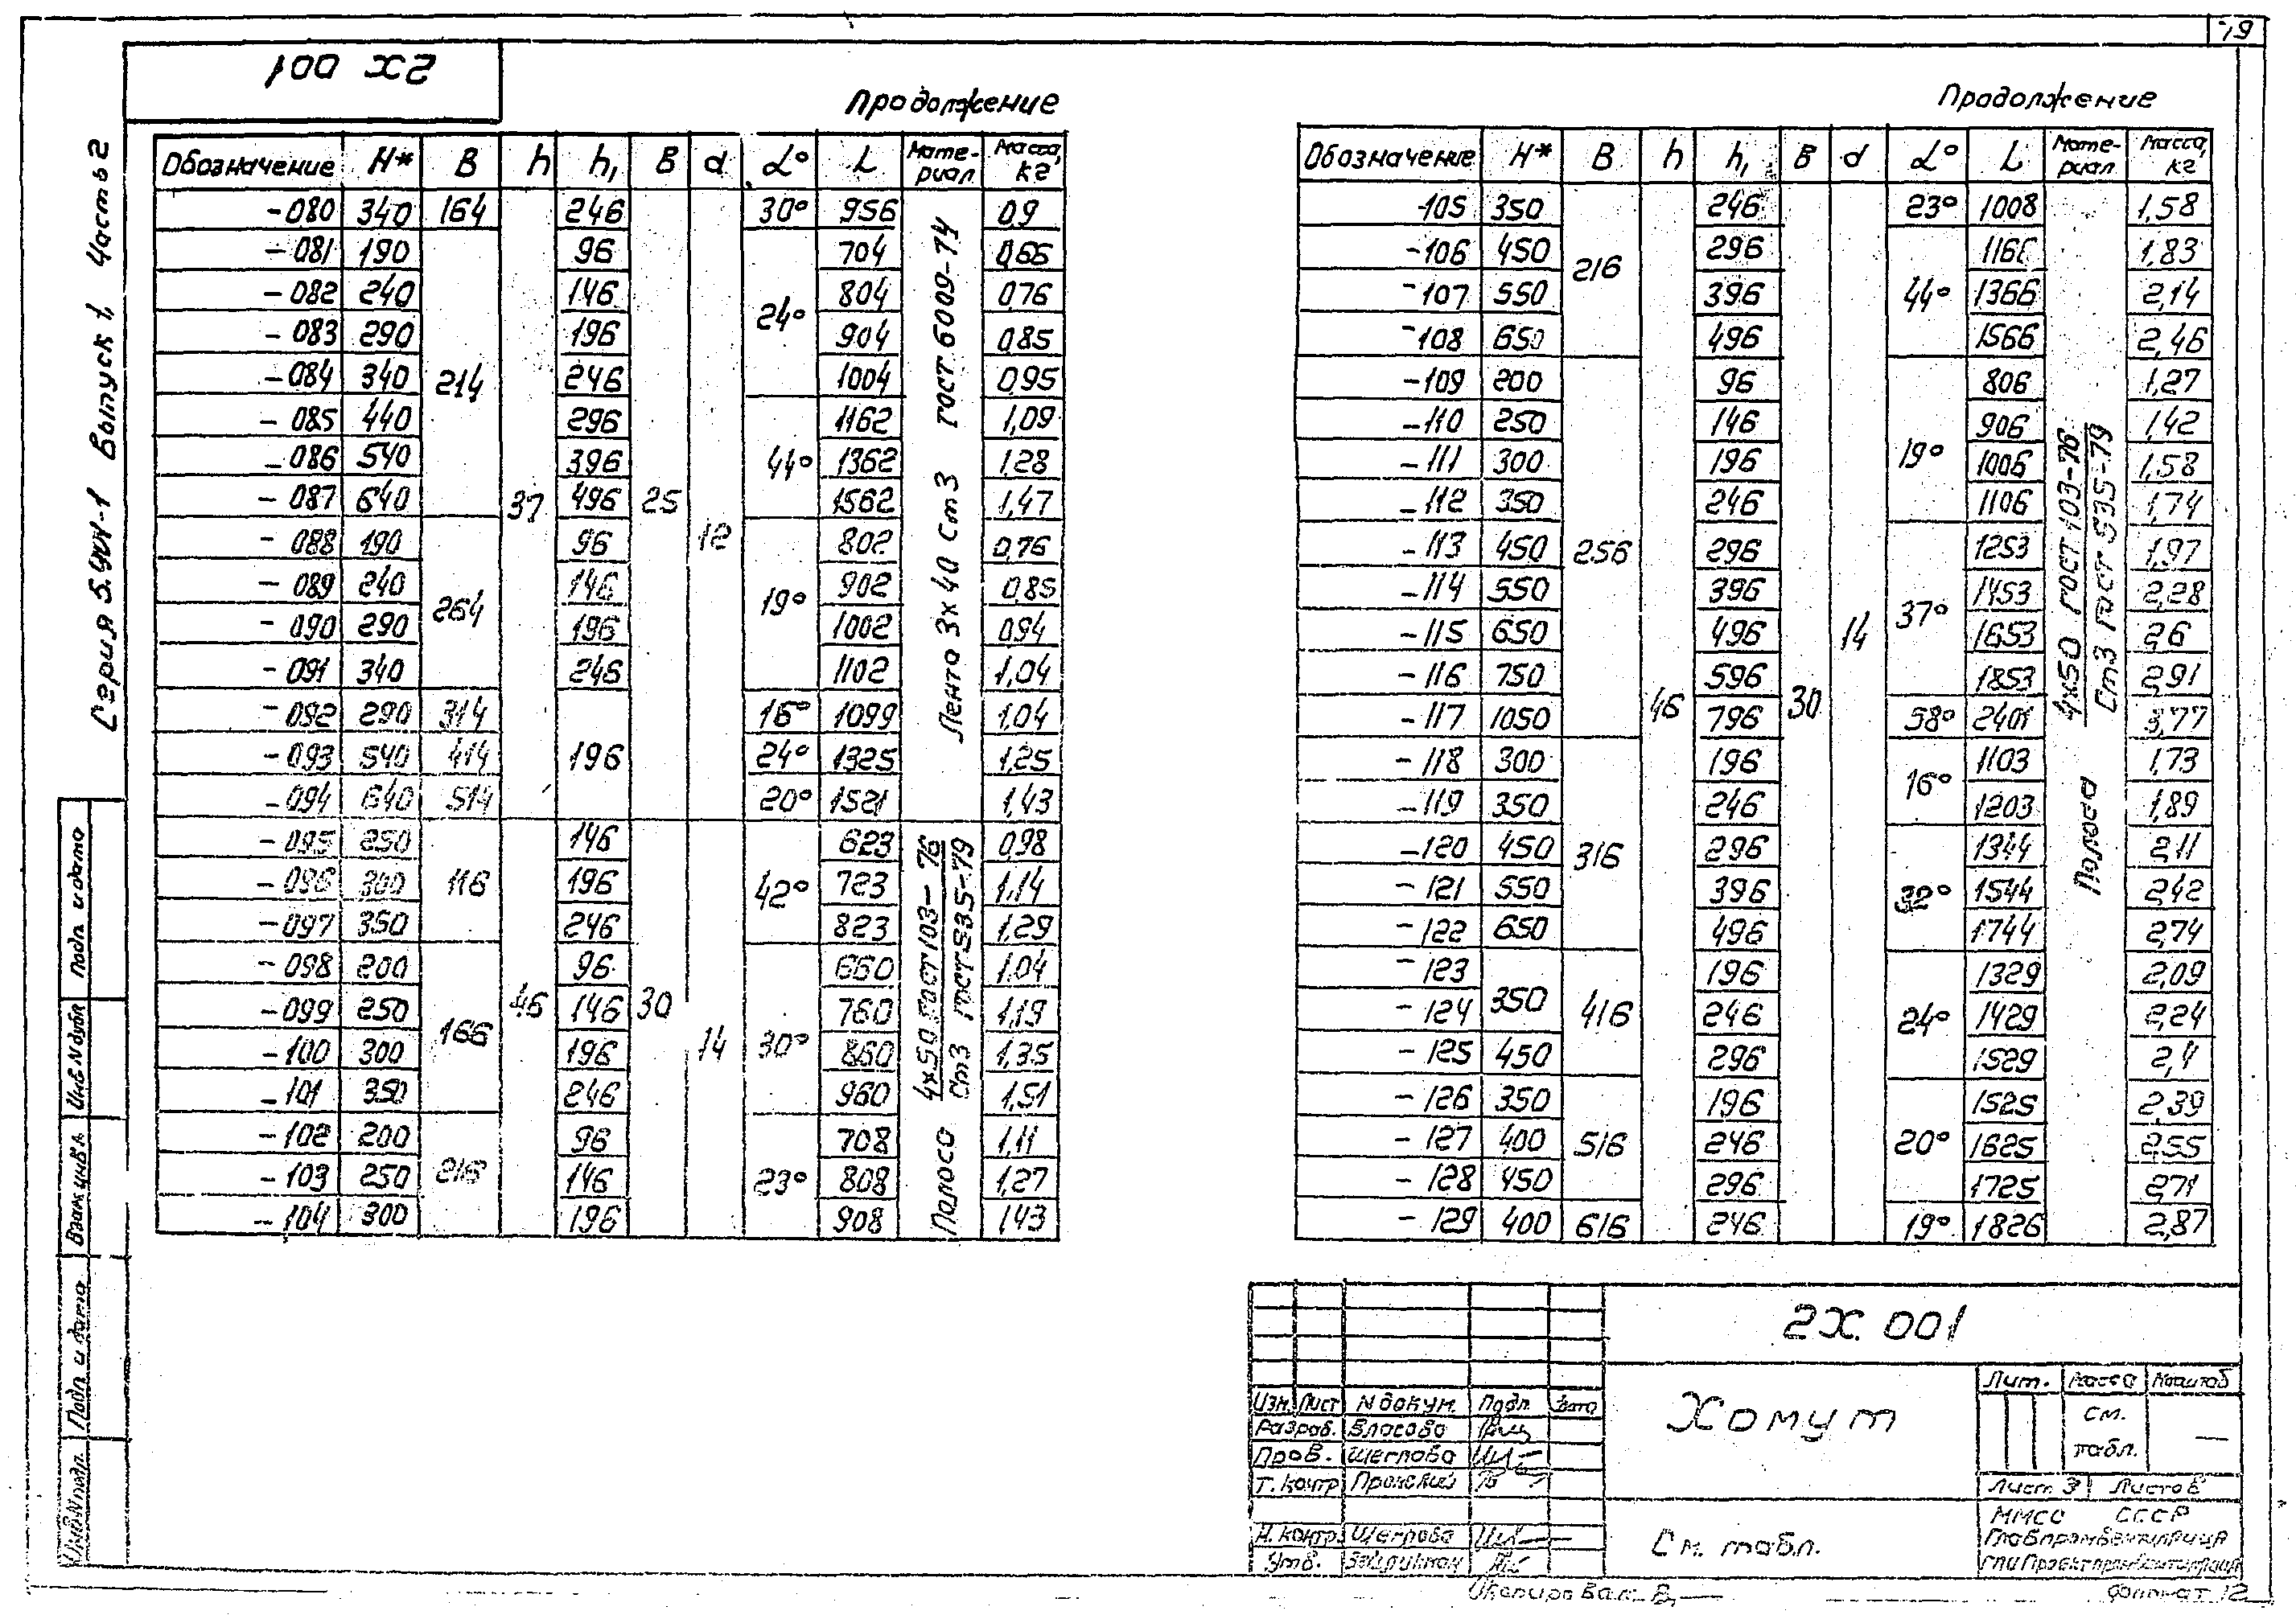 79
2Х 001
Серия 5.904-1 Выпуск 1, Часть 2
Продолжение
Обозначение Н* В h h₁ в d α° L Мате-риал Масса, кг
-080 340 164 246 30° 956 0,9
-081 190 96 704 0,66
-082 240 146 24° 804 0,76
-083 290 196 904 0,85
-084 340 214 246 1004 0,95
-085 440 296 1162 1,09
-086 540 396 44° 1362 1,28
-087 640 37 496 25 1562 1,47
-088 190 96 12 802 0,76
-089 240 146 902 0,85
-090 290 264 196 19° 1002 0,94
-091 340 246 1102 1,04
-092 290 314 16° 1099 1,04
-093 540 414 196 24° 1325 1,25
-094 640 514 20° 1521 1,43
Лента 3х40 Ст3 ГОСТ 6009-74
-095 250 146 623 0,98
-096 300 116 196 42° 723 1,14
-097 350 246 823 1,29
-098 200 96 660 1,04
-099 250 46 146 30 760 1,19
-100 300 166 196 14 30° 860 1,35
-101 350 246 960 1,51
-102 200 96 708 1,11
-103 250 216 146 23° 808 1,27
-104 300 196 908 1,43
Полоса 4х50 ГОСТ 103-76
Ст3 ГОСТ 535-79
Продолжение
Обозначение Н* В h h₁ в d α° L Мате-риал Масса, кг
-105 350 246 23° 1008 1,58
-106 450 216 296 1166 1,83
-107 550 396 44° 1366 2,14
-108 650 496 1566 2,46
-109 200 96 806 1,27
-110 250 146 906 1,42
-111 300 196 19° 1006 1,58
-112 350 246 1106 1,74
-113 450 256 296 1253 1,97
-114 550 396 1453 2,28
-115 650 496 14 37° 1653 2,6
-116 750 596 1853 2,91
-117 1050 46 796 30 58° 2401 3,77
-118 300 196 1103 1,73
-119 350 246 16° 1203 1,89
-120 450 316 296 1344 2,11
-121 550 396 32° 1544 2,42
-122 650 496 1744 2,74
-123 196 1329 2,09
-124 350 416 246 24° 1429 2,24
-125 450 296 1529 2,4
-126 350 196 1525 2,39
-127 400 516 246 20° 1625 2,55
-128 450 296 1725 2,71
-129 400 616 246 19° 1826 2,87
Полоса 4х50 ГОСТ 103-76
Ст3 ГОСТ 535-79
Подп. и дата
Инв. N дубл.
Взам. инв.
Подп. и дата
Инв. N подл.
2Х. 001
Изм. Лист N докум. Подп. Дата
Разраб. Власова
Пров. Щеглова
Т. контр
Н. контр. Щеглова
Утв.
Хомут
См. табл.
Лит. Масса Масштаб
См. табл. —
Лист 3 Листов
ММСС СССР
Главпромвентиляция
ГПИ Проектпромвентиляция
Копировал
Формат 12